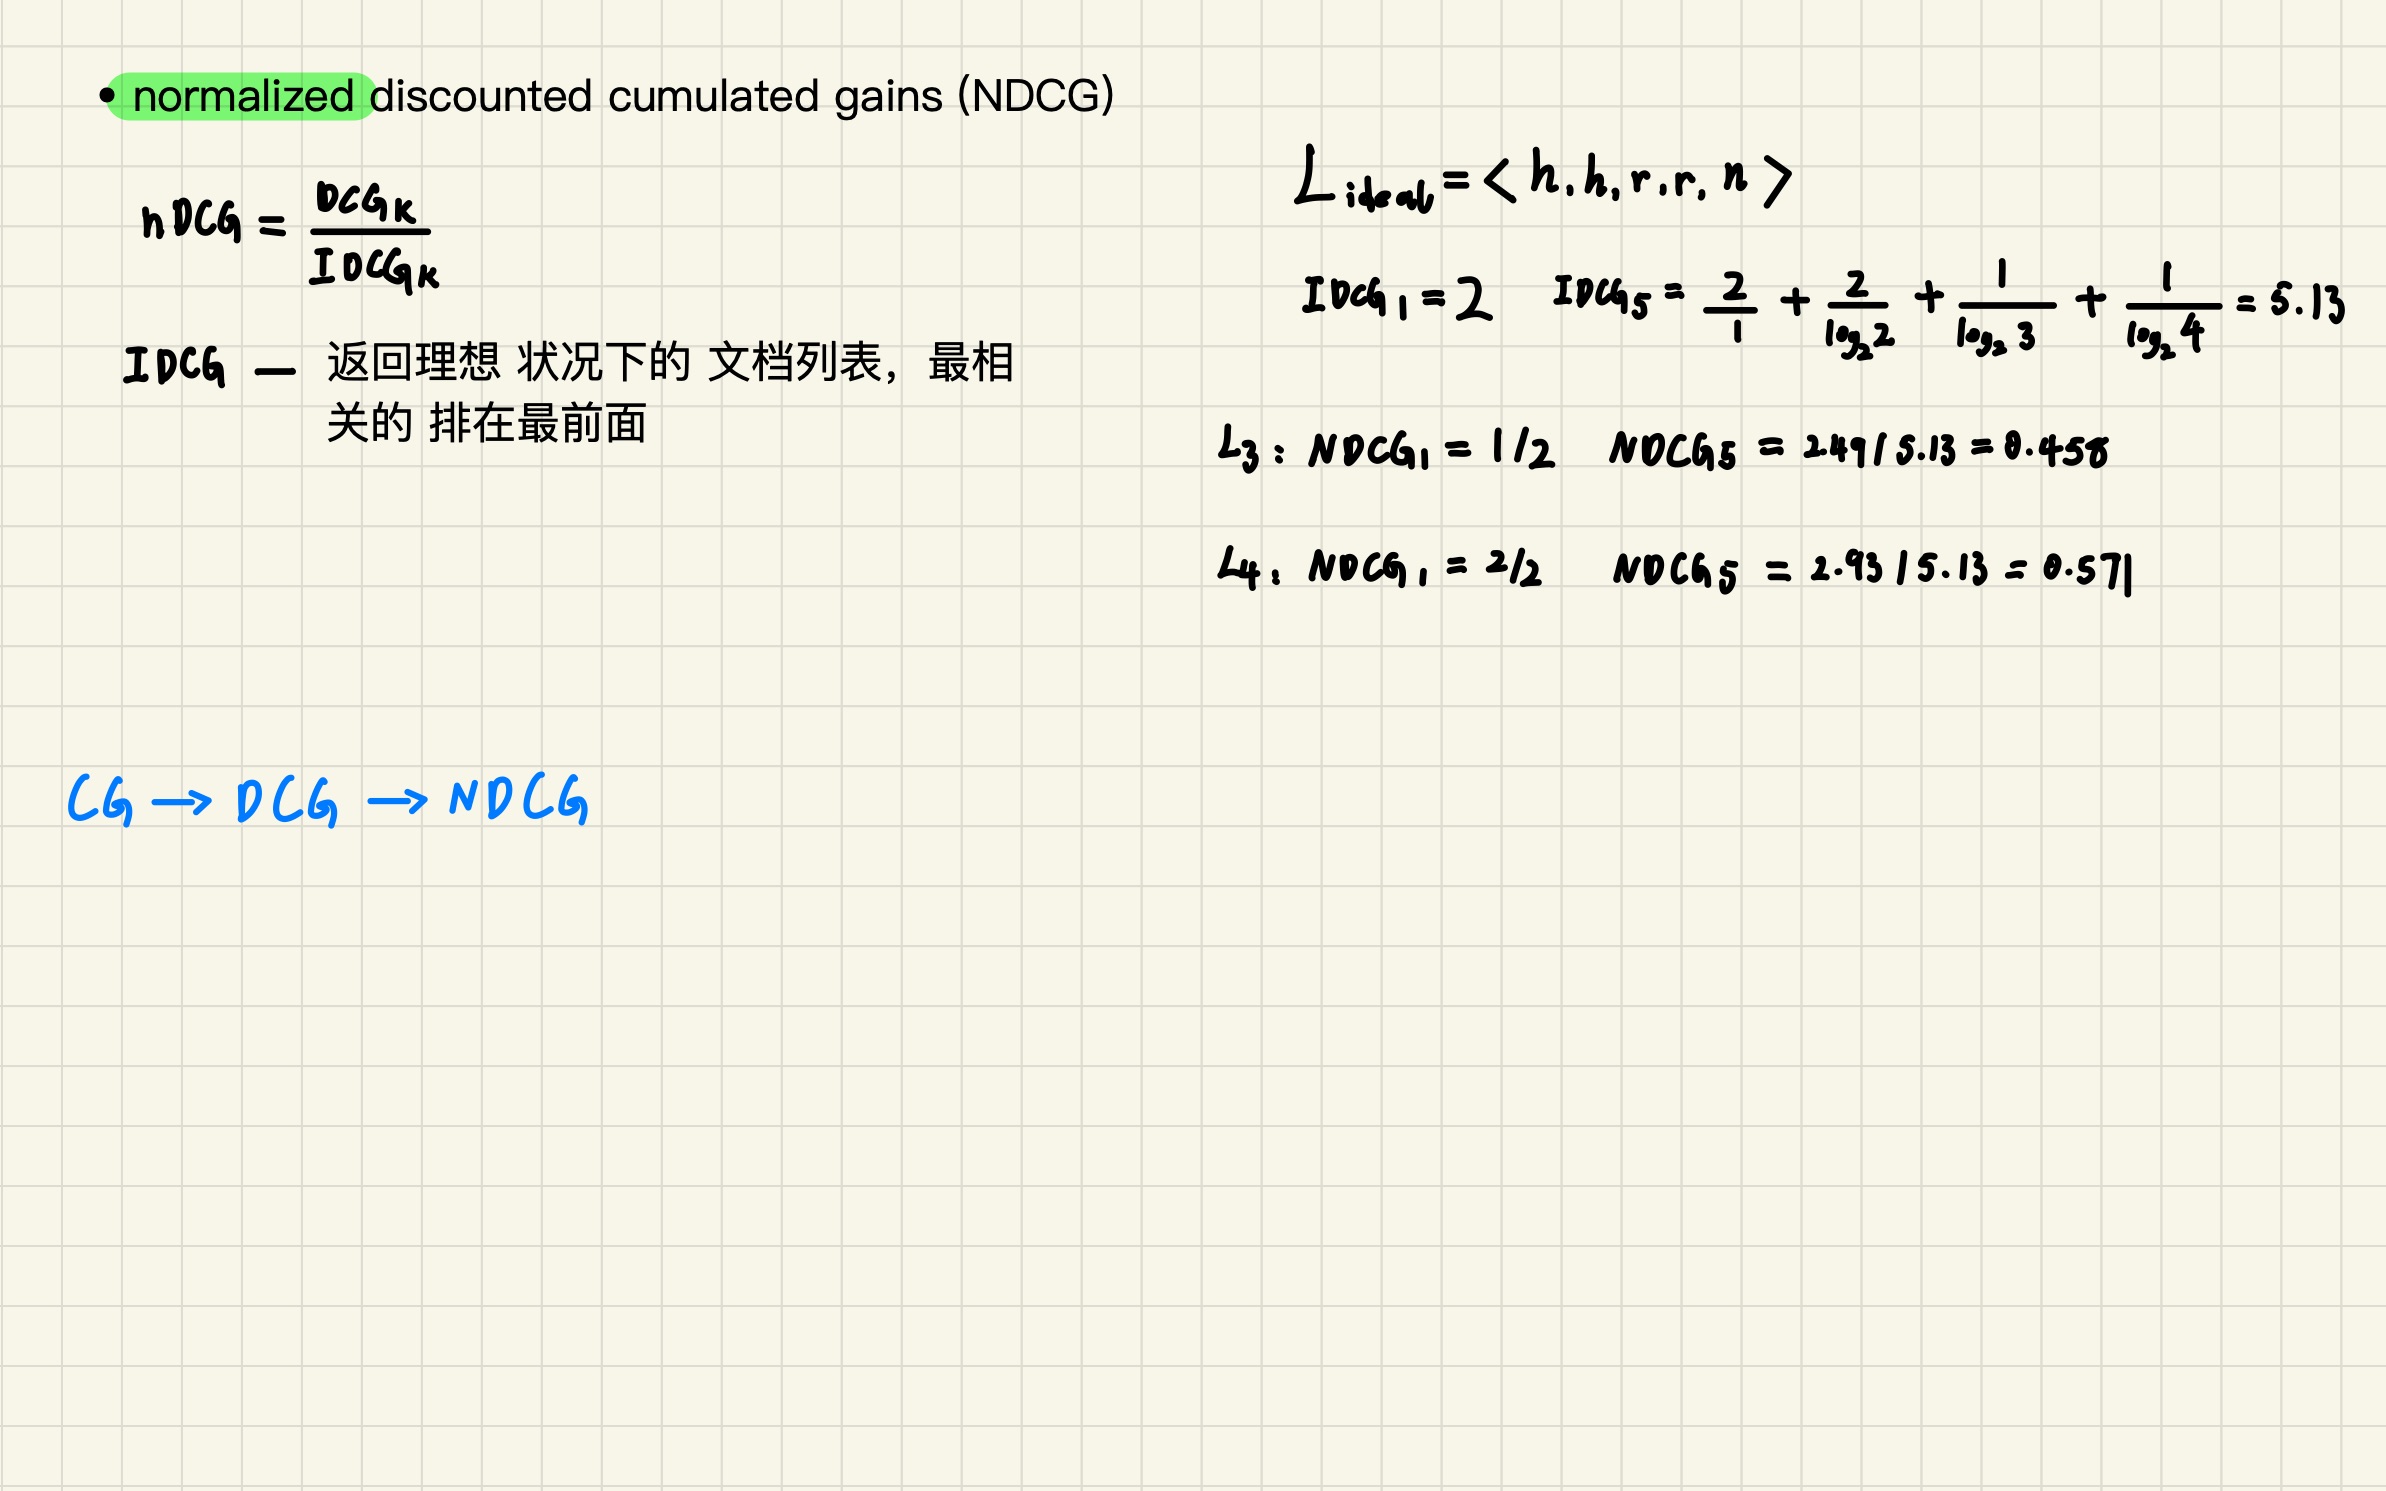 • normalized discounted cumulated gains (NDCG)
nDCG = DCG_K / IDCG_K
IDCG — 返回理想 状况下的 文档列表，最相
关的 排在最前面
L_ideal = < h, h, r, r, n >
IDCG_1 = 2 IDCG_5 = 2/1 + 2/log_2 2 + 1/log_2 3 + 1/log_2 4 = 5.13
L3: NDCG_1 = 1/2 NDCG_5 = 2.49/5.13 = 0.458
L4: NDCG_1 = 2/2 NDCG_5 = 2.93/5.13 = 0.571
CG → DCG → NDCG